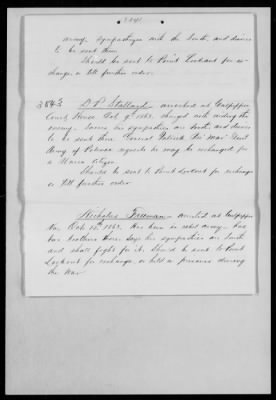 army, sympathizes with the South, and desires
to be sent there.
Should be sent to Point Lookout for ex-
change, or till further order.
3843 D. P. Stallard arrested at Culpepper
Court House Feb 9th 1863, charged with aiding the
enemy. Swears his sympathies are South, and desires
to be sent there. General Patrick Pro. Mar. Genl
Army of Potomac requests he may be exchanged for
a Union citizen.
Should be sent to Point Lookout for exchange
or till further order
Freeman arrested at Culpepper
Va. 1863. Has been in rebel army. Has
two brothers there. Says his sympathies are South
and shall fight for it. Should be sent to Point
Lookout for exchange, or held a prisoner during
the War.